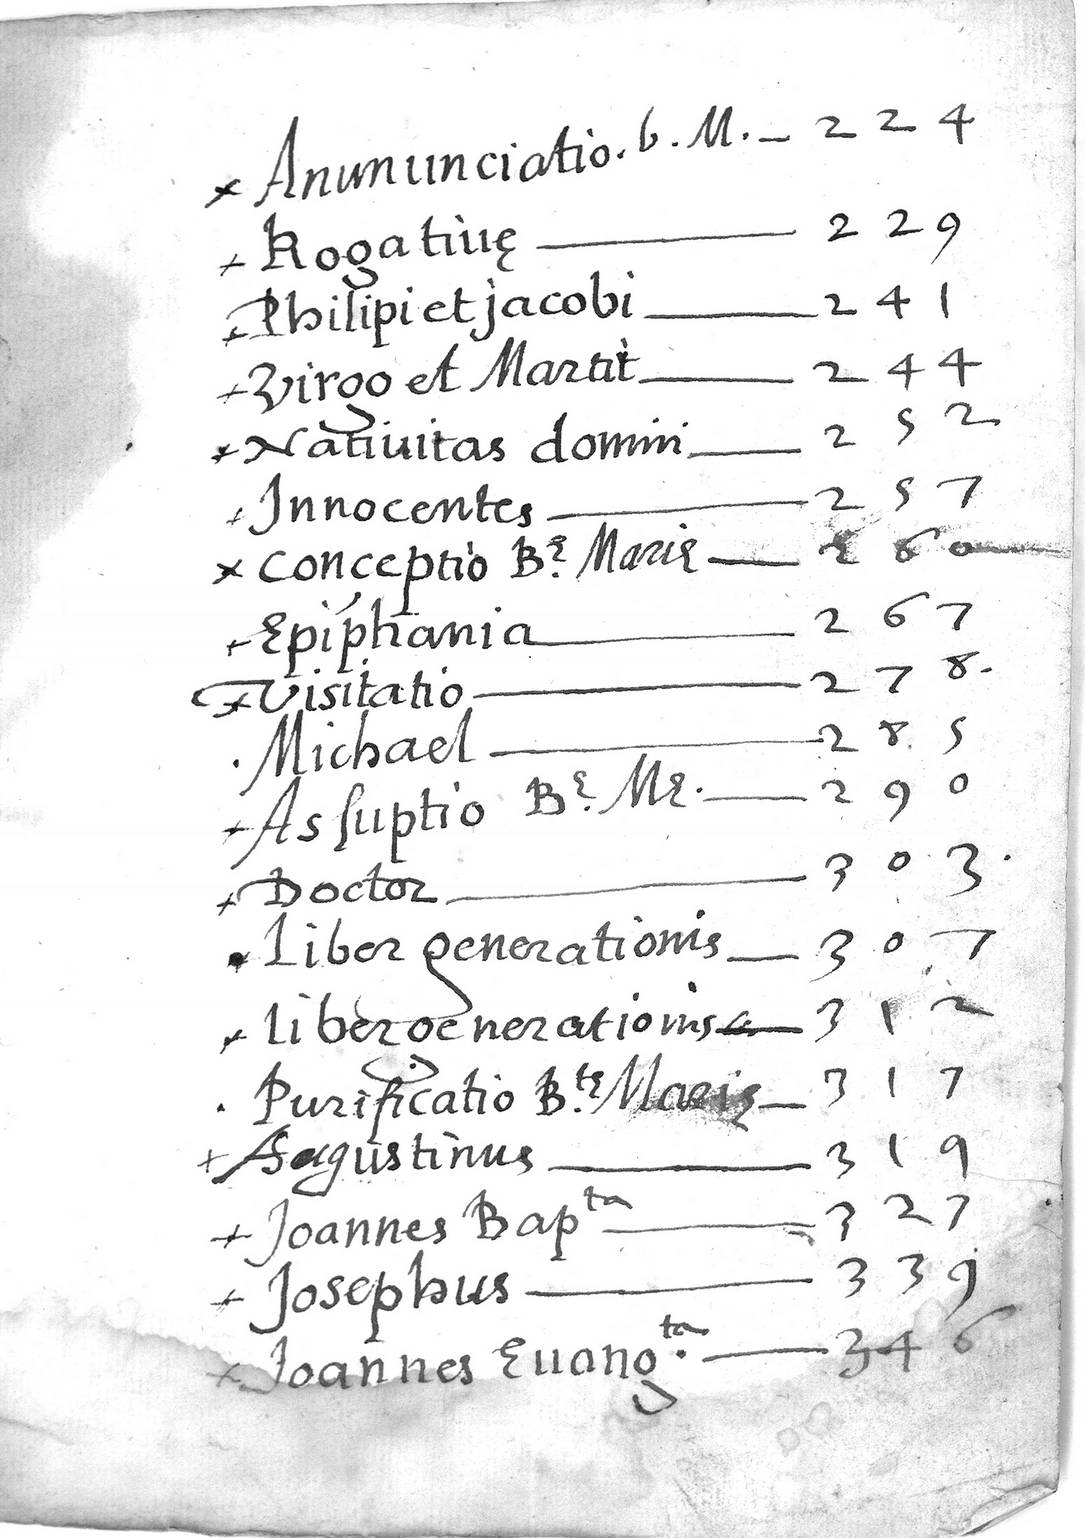 + Anununciatio. b. M. – 224
+ Rogatiuę — 229
+ Philipi et jacobi — 241
+ Virgo et Martir — 244
+ Natiuitas domini — 252
+ Innocentes — 257
+ conceptio Bę. Marię — 260
+ Epiphania — 267
+ Visitatio — 278.
. Michael — 285
+ Assuptio Bę. Mę. — 290
+ Doctor — 303.
. Liber generationis — 307
+ liber generationis — 312
. Purificatio Btę. Marię — 317
+ Augustinus — 319
+ Joannes Bapta — 327
+ Josephus — 339
+ Joannes Euangta. — 346